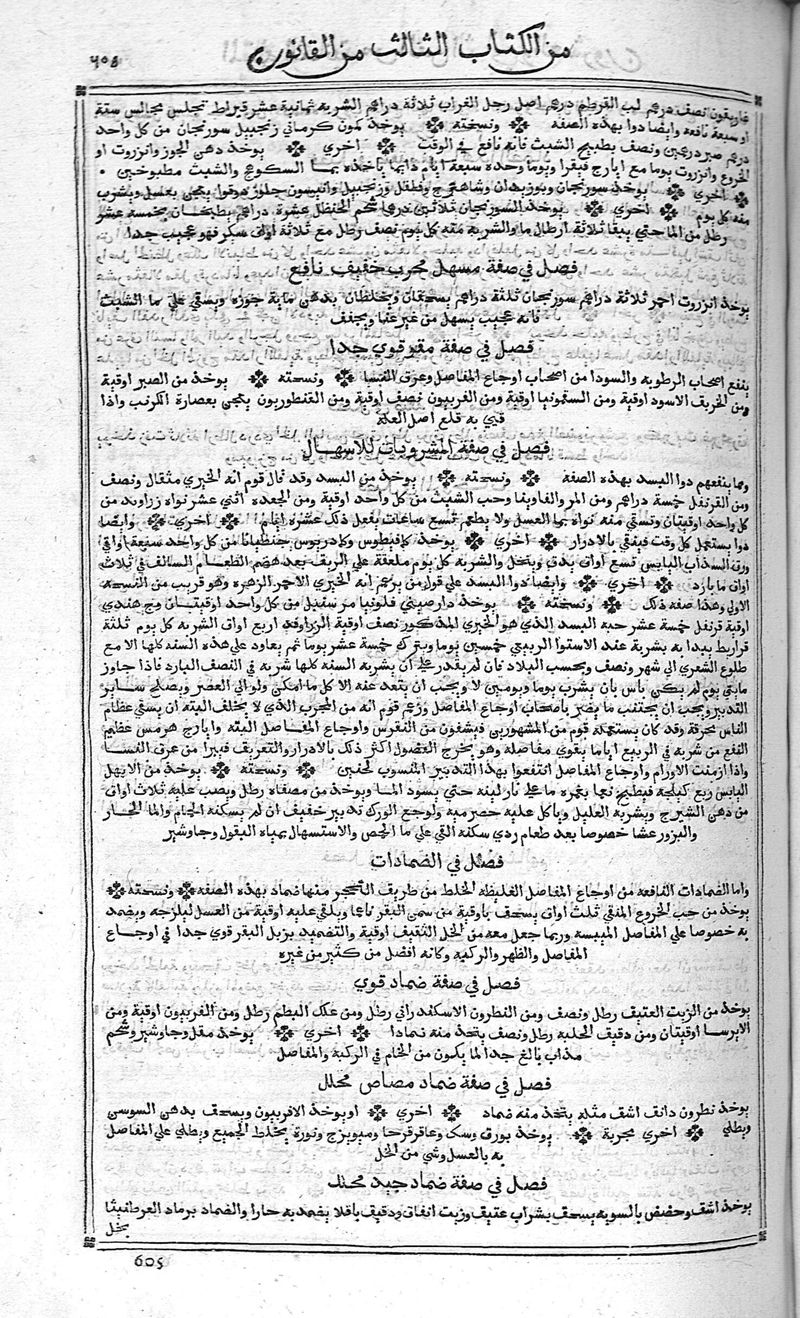 من الكتاب الثالث من القانون
٦٠٥
غاريقون نصف درهم لب القرطم درهم اصل رجل الغراب ثلاثة دراهم الشربه ثمانية عشر قيراط تجلس مجالس ستة
او سبعة نافعه وايضا دوا بهذه الصفه ونسخته يوخذ كمون كرماني زنجبيل سورنجان من كل واحد
درهم صبر درهمين ونصف بطبيخ الشبث فانه نافع في الوقت اخري يوخذ دهن الجوز وانزروت او
الخروع وانزروت يوما مع ايارج فيقرا ويوما وحده سبعة ايام دايما ياخذه بما السكوهج والشبث مطبوخين
اخري يوخذ سورنجان وبوزيدان وشاهترج وفلفل وزنجبيل وانيسون يعجن بعسل ويشرب
منه كل يوم اخري يوخذ السورنجان ثلاثين درهم شحم الحنظل عشرة دراهم يطبخان بخمسه عشر
رطل من الما حتي يبقا ثلاثة ارطال ما والشربه منه كل يوم نصف رطل مع ثلاثة اواق سكر فهو عجيب جدا
فصل في صفة مسهل مجرب خفيف نافع
يوخذ انزروت احمر ثلاثة دراهم سورنجان ثلثة دراهم يسحقان ويخلطان بدهن ماية جوزه ويسقي علي ما الشبث
فانه عجيب يسهل من غير عنا ويجفف
فصل في صفة مقر قوي جدا
ينفع اصحاب الرطوبه والسودا من اصحاب اوجاع المفاصل وعرق النسا ونسخته يوخذ من الصبر اوقية
ومن الخربق الاسود اوقية ومن السقمونيا اوقية ومن الفربيون نصف اوقية ومن القنطوريون يعجن بعصارة الكرنب واذا
قيي به قلع اصل العلة
فصل في صفة المشروبات للاسهال
وما ينفعهم دوا البسد بهذه الصفه ونسخته يوخذ من البسد وقد قال قوم انه الخيري مثقال ونصف
ومن القرنفل خمسة دراهم ومن المر والفاوينا وحب الشبث من كل واحد اوقية ومن الجعده اثني عشر نواه زراوند من
كل واحد اوقيتان وتسقي منه نواه بما العسل ولا يطعم تسع ساعات يفعل ذلك عشرة ايام اخري وايضا
دوا يستعمل كل وقت فينقي بالادرار اخري يوخذ كمافيطوس وكمادريوس جنطيانا من كل واحد سبعة اواقي
ورق السذاب اليابس تسع اواق يدق وينخل والشربه كل يوم ملعقة علي الريق بعد هضم الطعام السالف في ثلاث
اواق ما بارد اخري وايضا دوا البسد علي قول من يزعم انه الخيري الاحمر الزهره وهو قريب من النسخه
الاولي وهذا صفه ذلك ونسخته يوخذ دارصيني فلونيا مر سنبل من كل واحد اوقيتان وج هندي
اوقية قرنفل خمسة عشر حبه البسد الذي هو الخيري المذكور نصف اوقية الزراوند اربع اواق الشربه كل يوم ثلثة
قراريط يبدا به بشربه عند الاستوا الربيعي خمسين يوما ويتركه خمسة عشر يوما ثم يعاود علي هذه السنه كلها الا مع
طلوع الشعري الي شهر ونصف وبحسب البلاد فان لم يقدر علي ان يشربه السنه كلها شربه في النصف البارد فاذا جاوز
مايتي يوم لم يكن باس بان يشرب يوما ويومين لا ويجب ان يبعد عنه الاكل ما امكن ولو الي العصر ويصلح ساير
التدبير ويجب ان يجتنب ما يضر باصحاب اوجاع المفاصل وزعم قوم انه من المجرب الذي لا يخلف البته ان يسقي عظام
الناس محرقة وقد كان يستعمله قوم من المشهورين فيشفون من النقرس واوجاع المفاصل البته وايارج هرمس عظيم
النفع من شربه في الربيع اياما يقوي مفاصله وهو يخرج الفضول اكثر ذلك بالادرار والتعريف فيبرا من عرق النسا
واذا ازمنت الاورام واوجاع المفاصل انتفعوا بهذا التدبير المنسوب لحنين ونسخته يوخذ من الابهل
اليابس ربع كيلجة فيطبخ نعما بغمره ما علي نار لينه حتي يسود الما ويوخذ من مصفاه رطل ويصب عليه ثلاث اواق
من دهن الشيرج ويشربه العليل وياكل عليه حصرميه ولوجع الورك تدبير خفيف ان لم يسكنه الحمام والما الحار
والبزور عشا خصوصا بعد طعام ردي سكنه القي علي ما الحمص والاستسهال بمياه البقول وجاوشير
فصل في الضمادات
واما الضمادات النافعه من اوجاع المفاصل الغليظه الخلط من طريف التحجر منها ضماد بهذه الصفه ونسخته
يوخذ من حب الخروع المنقي ثلث اواق يسحق باوقية من سمن البقر ناعما ويلقي عليه اوقية من العسل ليلزجه ويضمد
به خصوصا علي المفاصل الميبسه وربما جعل معه من الخل الثقيف اوقية والتضميد بزبل البقر قوي جدا في اوجاع
المفاصل والظهر والركبه وكانه افضل من كثير من غيره
فصل في صفة ضماد قوي
يوخذ من الزيت العتيق رطل ونصف ومن النطرون الاسكندراني رطل ومن علك البطم رطل ومن الفربيون اوقية ومن
الايرسا اوقيتان ومن دقيق الحلبه رطل ونصف يتخذ منه ضمادا اخري يوخذ مقل وجاوشير وشحم
مذاب بالغ جدا لما يكون من الخام في الركبه والمفاصل
فصل في صفة ضماد مصاص محلل
يوخذ نطرون دانف اشف مثله يتخذ منه ضماد اخري او يوخذ الافربيون ويسحف بدهن السوسن
ويطلي اخري مجربة يوخذ بورق وسك وعاقرقرحا وميويزج ونورة يخلط الجميع ويطلي علي المفاصل
به بالعسل وشي من الخل
فصل في صفة ضماد جيد محلل
يوخذ اشف وحضض بالسويه يسحف بشراب عتيف وزيت انفاق ودقيف باقلا يضمد به حارا والضماد برماد العرطنيثا
بخل
605